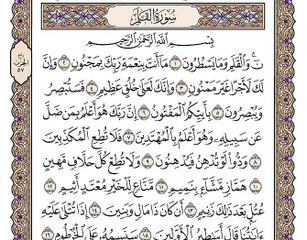 سُورَةُ الْقَلَمِ
بِسْمِ اللَّهِ الرَّحْمَٰنِ الرَّحِيمِ
نٓ ۚ وَالْقَلَمِ وَمَا يَسْطُرُونَ ١ مَا أَنتَ بِنِعْمَةِ رَبِّكَ بِمَجْنُونٍ ٢ وَإِنَّ
لَكَ لَأَجْرًا غَيْرَ مَمْنُونٍ ٣ وَإِنَّكَ لَعَلَىٰ خُلُقٍ عَظِيمٍ ٤ فَسَتُبْصِرُ
وَيُبْصِرُونَ ٥ بِأَييِّكُمُ الْمَفْتُونُ ٦ إِنَّ رَبَّكَ هُوَ أَعْلَمُ بِمَن ضَلَّ
عَن سَبِيلِهِ وَهُوَ أَعْلَمُ بِالْمُهْتَدِينَ ٧ فَلَا تُطِعِ الْمُكَذِّبِينَ
٨ وَدُّوا لَوْ تُدْهِنُ فَيُدْهِنُونَ ٩ وَلَا تُطِعْ كُلَّ حَلَّافٍ مَّهِينٍ
١٠ هَمَّازٍ مَّشَّاءٍ بِنَمِيمٍ ١١ مَّنَّاعٍ لِّلْخَيْرِ مُعْتَدٍ أَثِيمٍ ١٢
عُتُلٍّ بَعْدَ ذَٰلِكَ زَنِيمٍ ١٣ أَن كَانَ ذَا مَالٍ وَبَنِينَ ١٤ إِذَا تُتْلَىٰ عَلَيْهِ
آيَاتُنَا قَالَ أَسَاطِيرُ الْأَوَّلِينَ ١٥ سَنَسِمُهُ عَلَى الْخُرْطُومِ ١٦